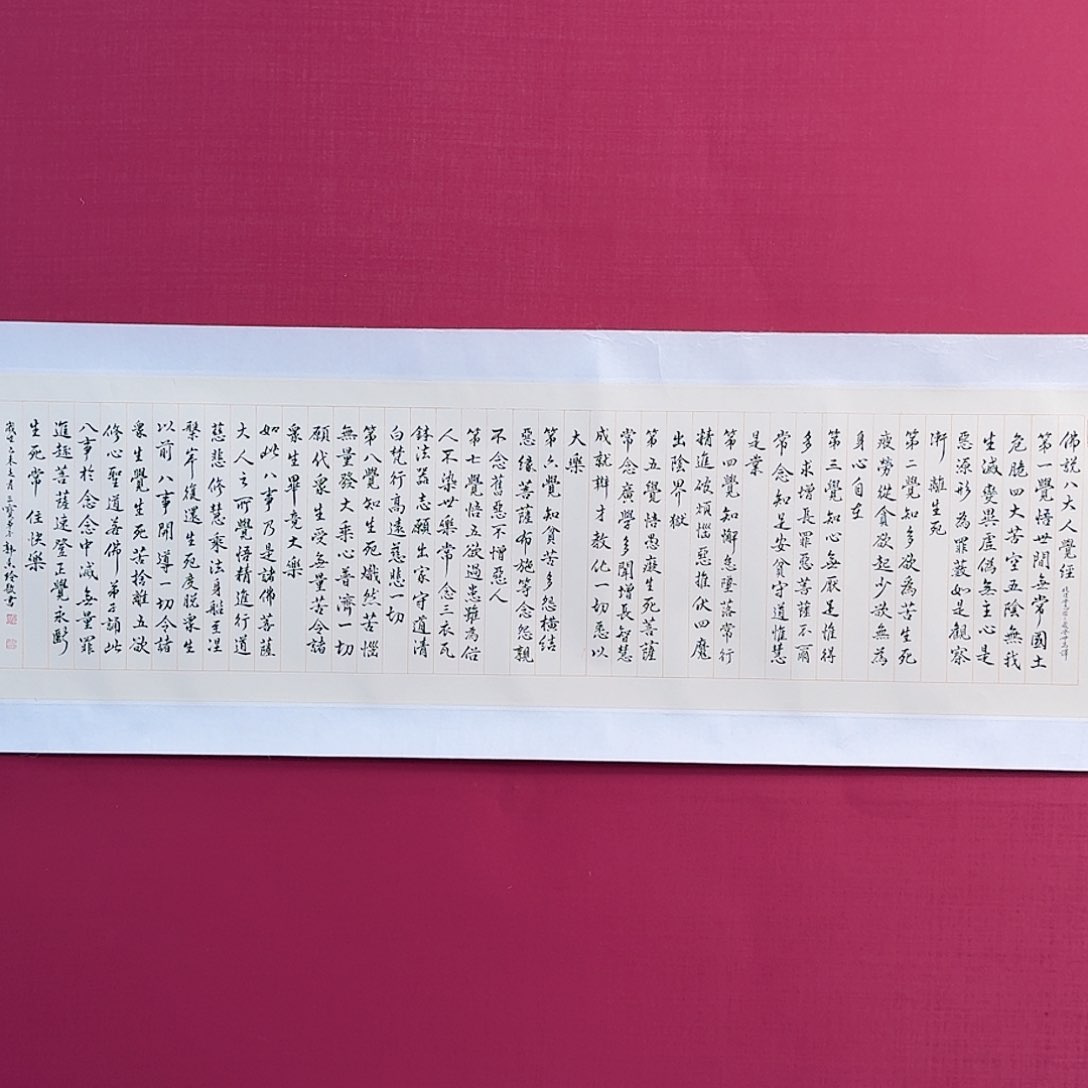 佛說八大人覺經
第一覺悟世間無常國土
危脆四大苦空五陰無我
生滅變異虛偽無主心是
惡源形為罪藪如是觀察
漸離生死
第二覺知多欲為苦生死
疲勞從貪欲起少欲無為
身心自在
第三覺知心無厭足惟得
多求增長罪惡菩薩不爾
常念知足安貧守道惟慧
是業
第四覺知懈怠墜落常行
精進破煩惱惡摧伏四魔
出陰界獄
第五覺悟愚癡生死菩薩
常念廣學多聞增長智慧
成就辯才教化一切悉以
大樂
第六覺知貧苦多怨橫結
惡緣菩薩布施等念怨親
不念舊惡不憎惡人
第七覺悟五欲過患雖為俗
人不染世樂常念三衣瓦
鉢法器志願出家守道清
白梵行高遠慈悲一切
第八覺知生死熾然苦惱
無量發大乘心普濟一切
願代衆生受無量苦令諸
衆生畢竟大樂
如此八事乃是諸佛菩薩
大人之所覺悟精進行道
慈悲修慧乘法身船至涅
槃岸復還生死度脫衆生
以前八事開導一切令諸
衆生覺生死苦捨離五欲
修心聖道若佛弟子誦此
八事於念念中滅無量罪
進趣菩薩速登正覺永斷
生死常住快樂